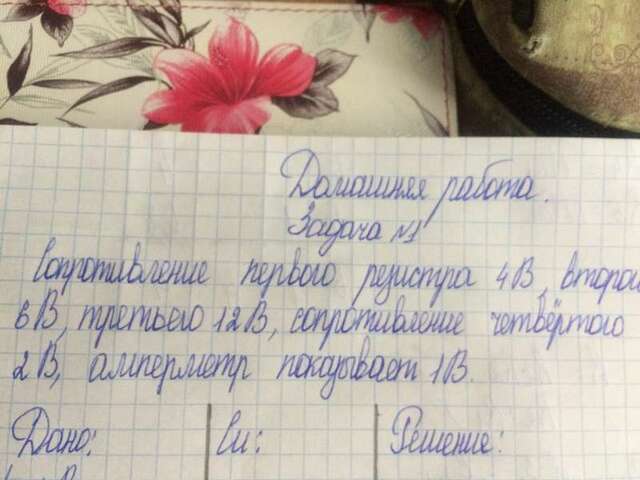 Домашняя работа.
Задача №1
Сопротивление первого резистра 4В, второго
6В, третьего 12В, сопротивление четвёртого
2В, амперметр показывает 1В.
Дано: Си: Решение: